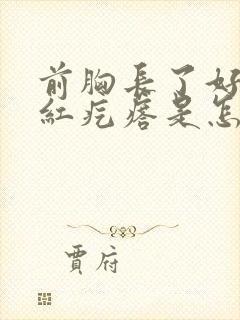 前胸長了好
紅疙瘩是怎
賈府